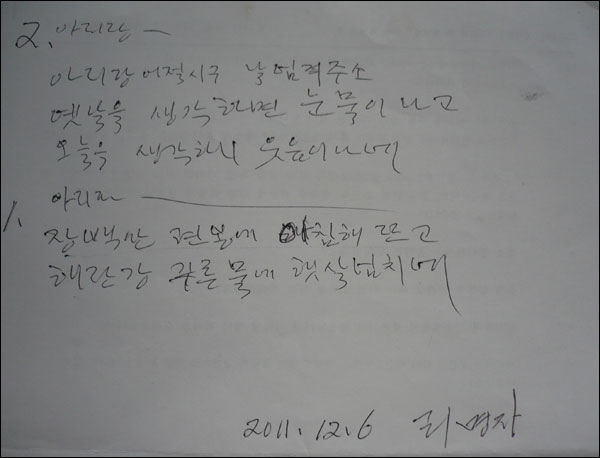 2. 아리랑 —
아리랑 어절시구 날 넘겨주소
옛날을 생각하면 눈물이 나고
오늘을 생각하니 웃음이 나네
아리라
1.
장백산 련봉에 아침해 뜨고
해란강 푸른물에 햇살넘치네
2011. 12. 6 리영자